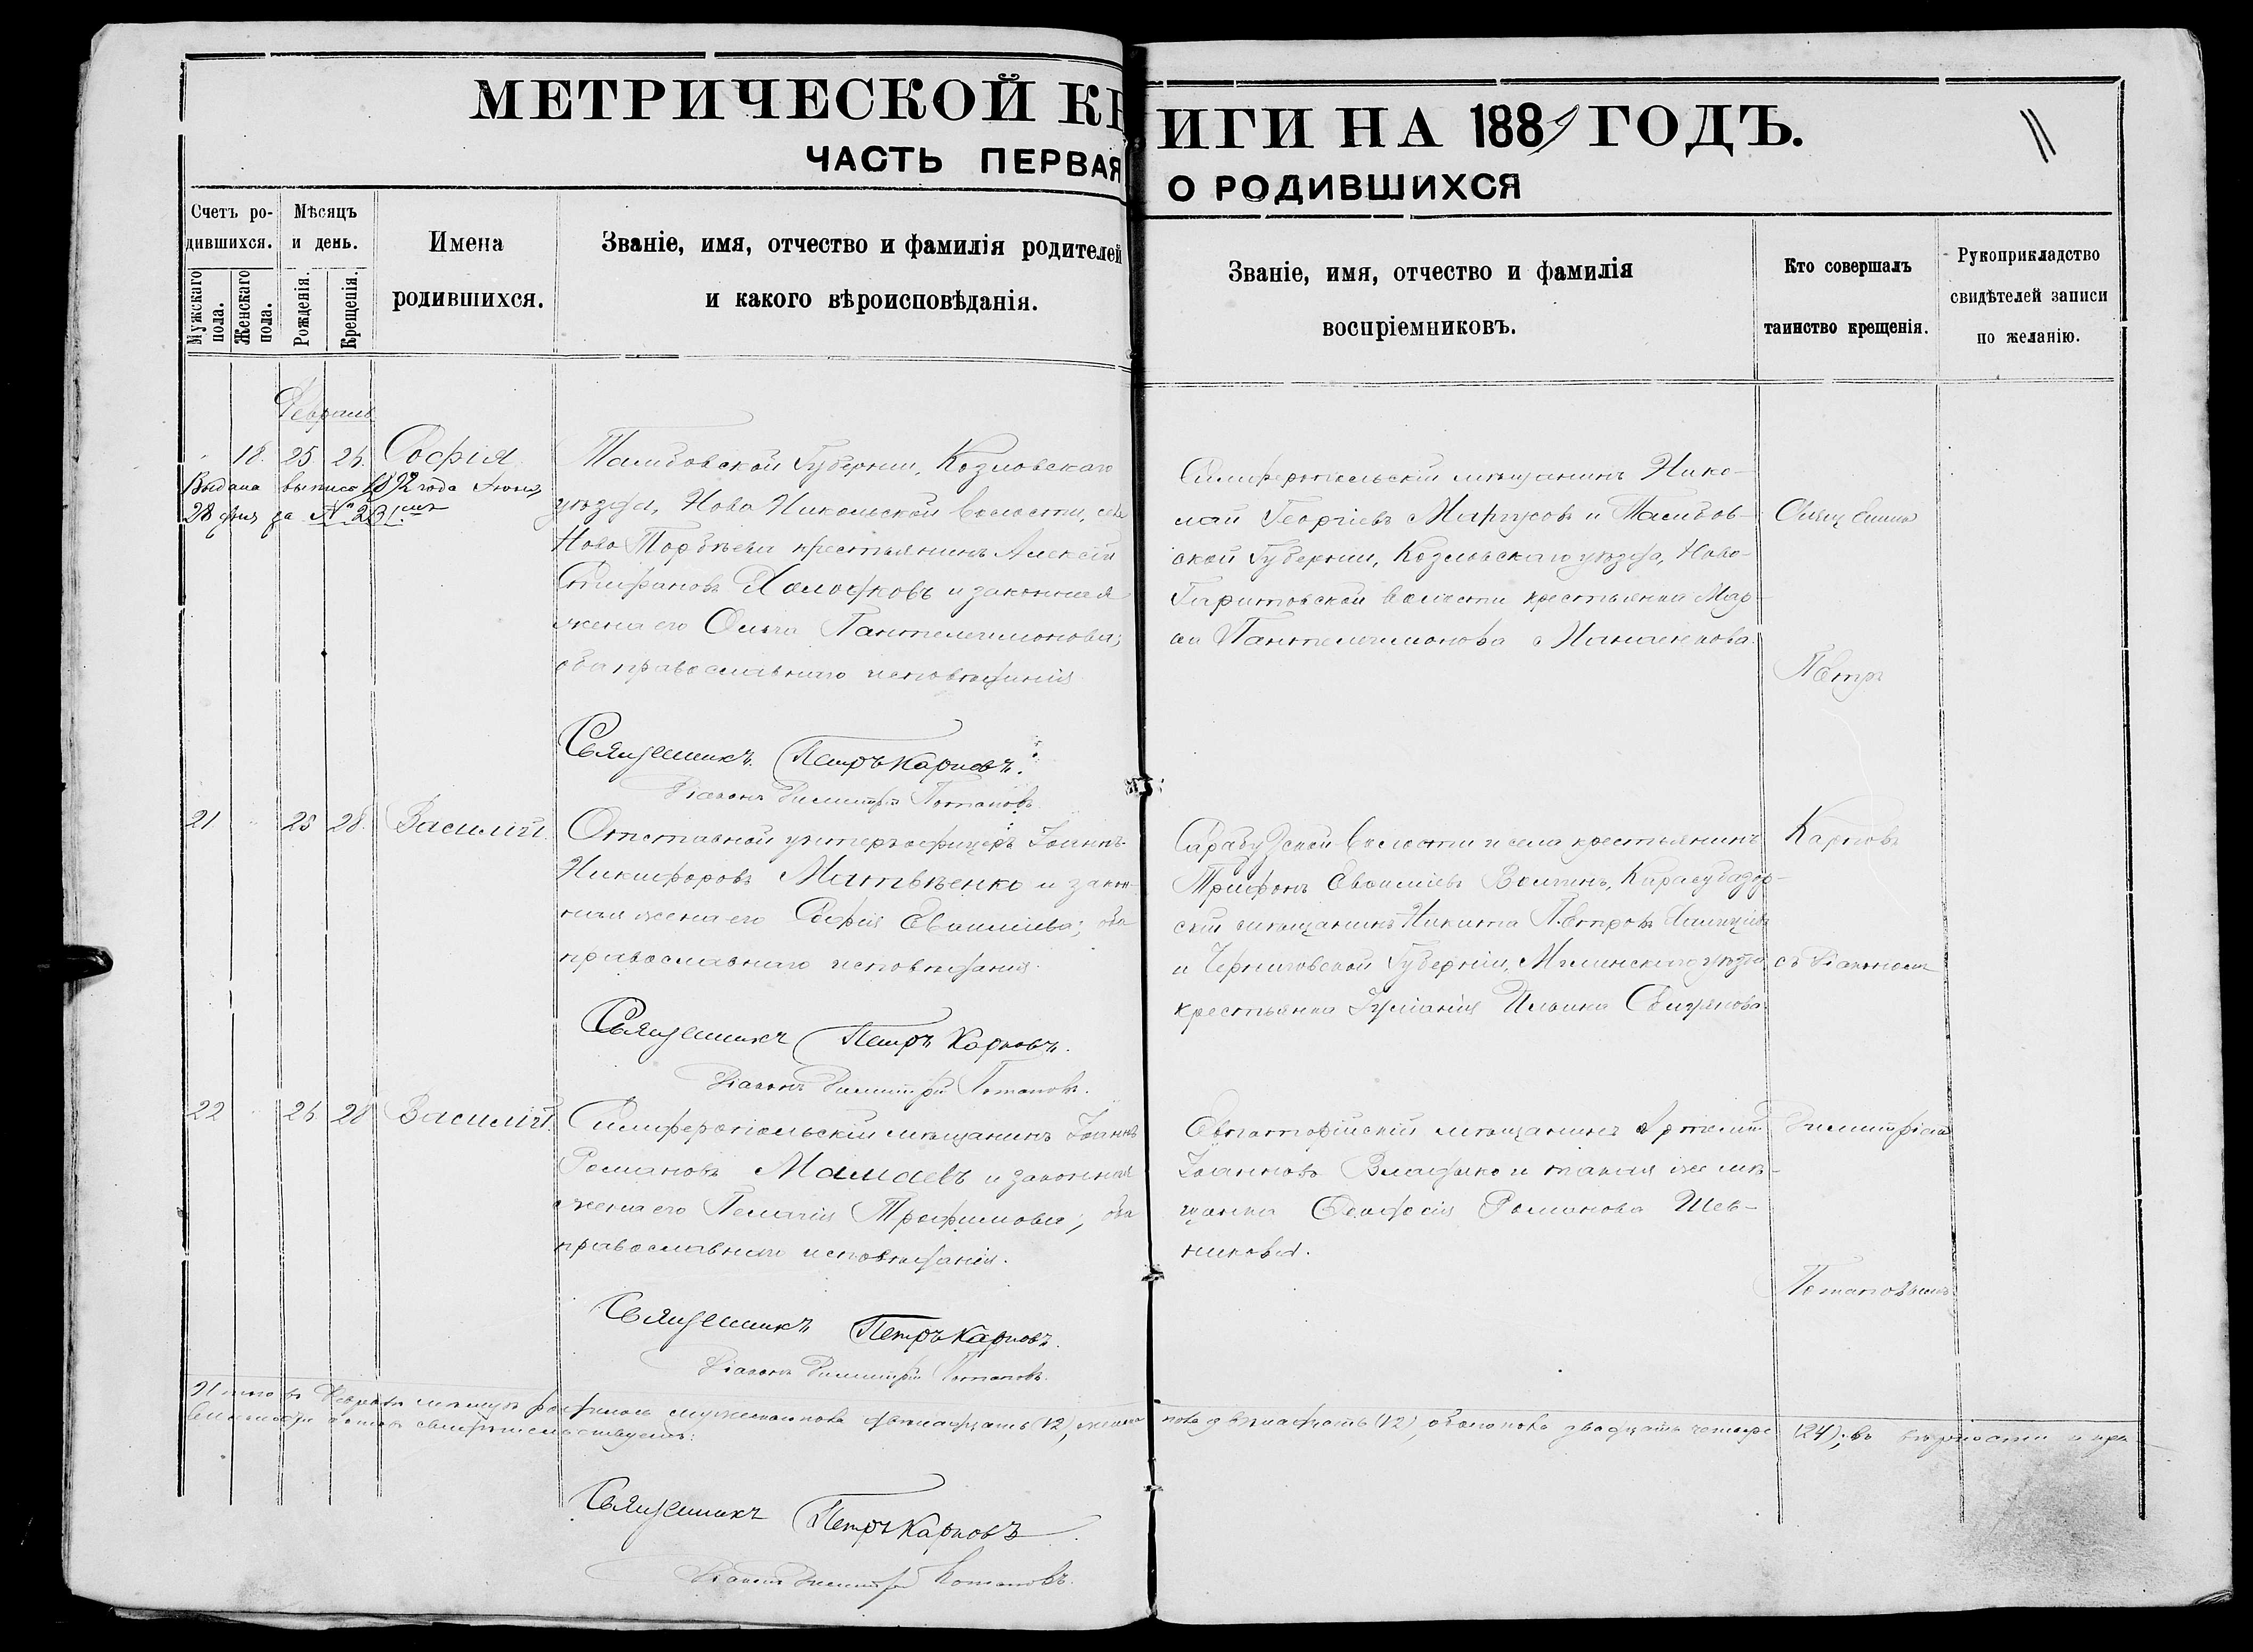 МЕТРИЧЕСКОЙ КН
ИГИ НА 1889 ГОДЪ.
ЧАСТЬ ПЕРВАЯ
О РОДИВШИХСЯ
Счетъ ро-
дившихся.
Мужскаго
пола.
Женскаго
пола.
Мѣсяцъ
и день.
Рожденія.
Крещенія.
Имена
родившихся.
Званіе, имя, отчество и фамилія родителей
и какого вѣроисповѣданія.
Званіе, имя, отчество и фамилія
воспріемниковъ.
Кто совершалъ
таинство крещенія.
Рукоприкладство
свидѣтелей записи
по желанію.
Февраль
18. 25. 26. Софія
Выдана выпись 1892 года
28 дня за №
Тамбовской Губерніи, Козловскаго
уѣзда, Ново Никольской волости, села
Ново крестьянинъ Алексѣй
Холодковъ и законная
жена его Ольга Пантелеимонова;
оба православнаго исповѣданія
Священникъ Петръ Карповъ.
Діаконъ Димитрій Потаповъ.
Симферопольскій мѣщанинъ Нико-
лай Георгіевъ и Тамбов-
ской Губерніи, Козловскаго уѣзда, Ново-
Гаритовской волости крестьянка Мар-
Пантелеимонова
Петръ
21 25 28. Василій.
Отставной унтеръ офицеръ Іоаннъ
Никифоровъ Матвѣенко и закон-
ная жена его Софія; оба
православнаго исповѣданія.
Священникъ Петръ Карповъ.
Діаконъ Димитрій Потаповъ.
Сарабузской волости и села крестьянинъ
Трифонъ Волгинъ, Карасубазар-
скій мѣщанинъ Никита Петровъ
и Черниговской Губерніи, Мглинскаго уѣзда
крестьянка Іуліанія Ильина
Карповъ
съ Діакономъ
22 26 28 Василій.
Симферопольскій мѣщанинъ Іоаннъ
Романовъ Мамаевъ и законная
жена его Пелагія Трофимова; оба
православнаго исповѣданія.
Священникъ Петръ Карповъ.
Діаконъ Димитрій Потаповъ.
Евпаторійскій мѣщанинъ
Іоанновъ и такая же мѣ-
щанка Романова Шев-
никова.
Димитріемъ
Потаповымъ
Итого въ Февралѣ мѣсяцѣ родилось мужескаго пола двѣнадцать (12), женска пола двѣнадцать (12), обоего пола двадцать четыре (24); въ вѣрности и пра
свидѣтельствуемъ:
Священникъ Петръ Карповъ
Діаконъ Димитрій Потаповъ.